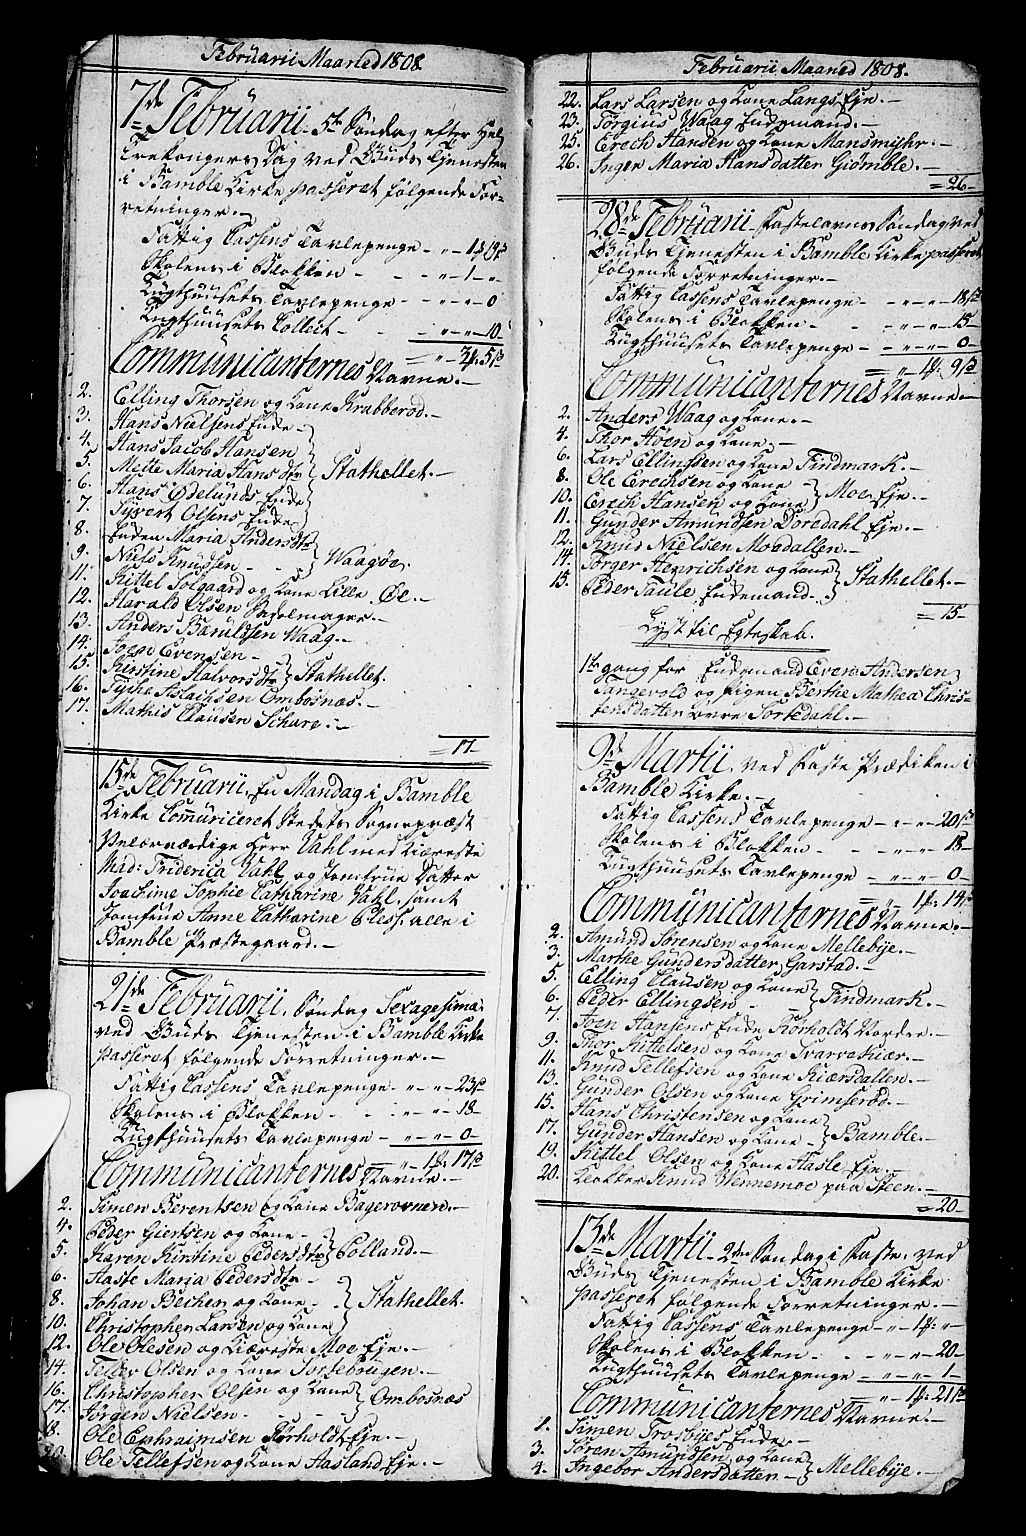 Februarii Maaned 1808.
7de Februarii. 5te Søndag efter Hel.
Trekongers Dag ved Guds Tjenesten
i Bamble Kirke passeret følgende For-
retninger.
Fattig Cassens Tavlepenge
Skolens i Blokken - 1 -
Tugthuusets Tavlepenge - 0
Tugthuusets Collect - 10
Communicanternes Navne.
2. Elling Thorsen og Kone Krabberød.
3. Hans Nielsens Enke
4. Hans Jacob Hansen
5. Mette Maria Hansdtr Stathellet.
6. Hans Ødelunds Enke
7. Sivert Olsens Enke
8. Enken Maria Andersdtr
9. Niels Knudsen - Waagøe.
11. Kittel Solgaard og Kone Lille Øe.
12. Harald Olsen Sadelmager.
13. Anders Baruldsen Waag.
14. Joen Evensen
15. Kirstine Halvorsdtr Stathellet
16. Tyke Aslachsen Ombosnæs.
17. Mathis Clausen Schare.
17
15de Februarii, En Mandag i Bamble
Kirke Comuniceret Stedets Sognepræst
Velærværdige Herr Vahl med Kiæreste
Mad: Friderica Vahl og Jomfrue Datter
Joachime Sophie Catharine Vahl, samt
Jomfrue Anne Catharine Pless. alle i
Bamble Præstegaard.
21de Februarii, Søndag Sexagesima
ved Guds Tjenesten i Bamble Kirke
passeret følgende Forretninger.
Fattig Cassens Tavlepenge - 23
Skolens i Blokken - 18
Tugthuusets Tavlepenge - 0
Communicanternes Navne.
2. Simen Berentsen og Kone Bagerovnen.
4. Peder Giertsen og Kone
5. Karen Kirstine Pedersdtr Tolland.
6. Aasse Maria Pedersdtr
8. Johan Becher og Kone Stathellet.
10. Christopher Larsen og Kone
12. Ole Olesen og Kiæreste Moe Eje.
14. Teller Olsen og Kone Tortebrugen.
16. Christopher Olsen og Kone Ombosnæs
17. Jørgen Nielsen
18. Ole Ephraimsen Kørholdt Eje.
20. Ole Tellefsen og Kone Aasland Eje.
Februarii Maaned 1808.
22. Lars Larsen og Kone Langs Eje.
23. Torgius Waag Enkemand.
25. Erech Hansen og Kone Mansmyhr.
26. Inger Maria Hansdatter Giømble.
26
28de Februarii Fastelavns Søndag ved
Guds Tjenesten i Bamble Kirke passeret
følgende Forretninger.
Fattig Cassens Tavlepenge - 18
Skolens i Blokken - 15
Tugthuusets Tavlepenge - 0
Communicanternes Navne.
2. Anders Waag og Kone.
4. Thor Høen og Kone.
6. Lars Ellingsen og Kone Findmark.
8. Ole Erechsen og Kone Moe Eje.
10. Erech Hansen og Kone
11. Gunder Amundsen Doredahl Eje.
12. Knud Nielsen Moedallen.
14. Torger Henrichsen og Kone Stathellet.
15. Peder Taule Enkemand.
15
Lyst til Egteskab.
1te gang for Enkemand Even Andersen
Tangvold og Pigen Berthe Mathea Chris-
tensdatter Øvre Tortdahl.
9de Martii, ved Faste Prædiken i
Bamble Kirke.
Fattig Cassens Tavlepenge - 20
Skolens i Blokken - 18
Tugthuusets Tavlepenge - 0
Communicanternes Navne.
2. Amund Sørensen og Kone Mellebye.
3. Marthe Gundersdatter Garstad.
5. Elling Clausen og Kone Findmark.
6. Peder Ellingsen
7. Joen Hansens Enke Kørholdt Nordre.
9. Thor Kittelsen og Kone Svarvekiær.
11. Knud Tellefsen og Kone Kiærsdallen.
13. Gunder Olsen og Kone Grimserød.
15. Hans Christensen og Kone Bamble.
17. Gunder Hansen og Kone
19. Kittel Olsen og Kone Hasle Eje.
20. Klokker Knud Wennemoe paa Steen.
20
13de Martii 2den Søndag i Faste, ved
Guds Tjenesten i Bamble Kirke
passeret følgende Forretninger.
Fattig Cassens Tavlepenge
Skolens i Blokken - 20
Tugthuusets Tavlepenge - 1
Communicanternes Navne.
1. Simen Trosbyes Enke.
3. Søren Amundsen og Kone Mellebye.
4. Ingebor Andersdatter